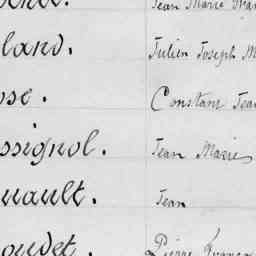 Jean Marie
land. Julien Joseph M
ose. Constant Jean
ssignol. Jean Marie
uault. Jean
oudet. Pierre